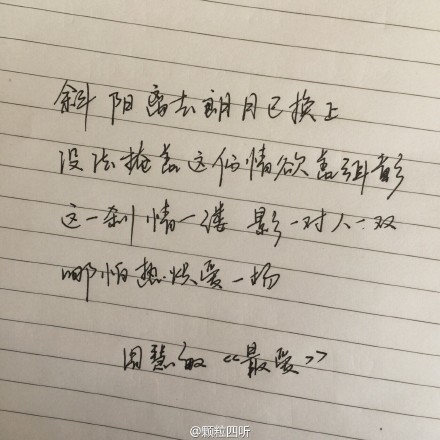 斜阳离去朗月已换上
没法掩盖这份情欲盖弥彰
这一刹情一缕 影一对人一双
哪怕热炽爱一场
周慧敏《最爱》
@颗粒四听